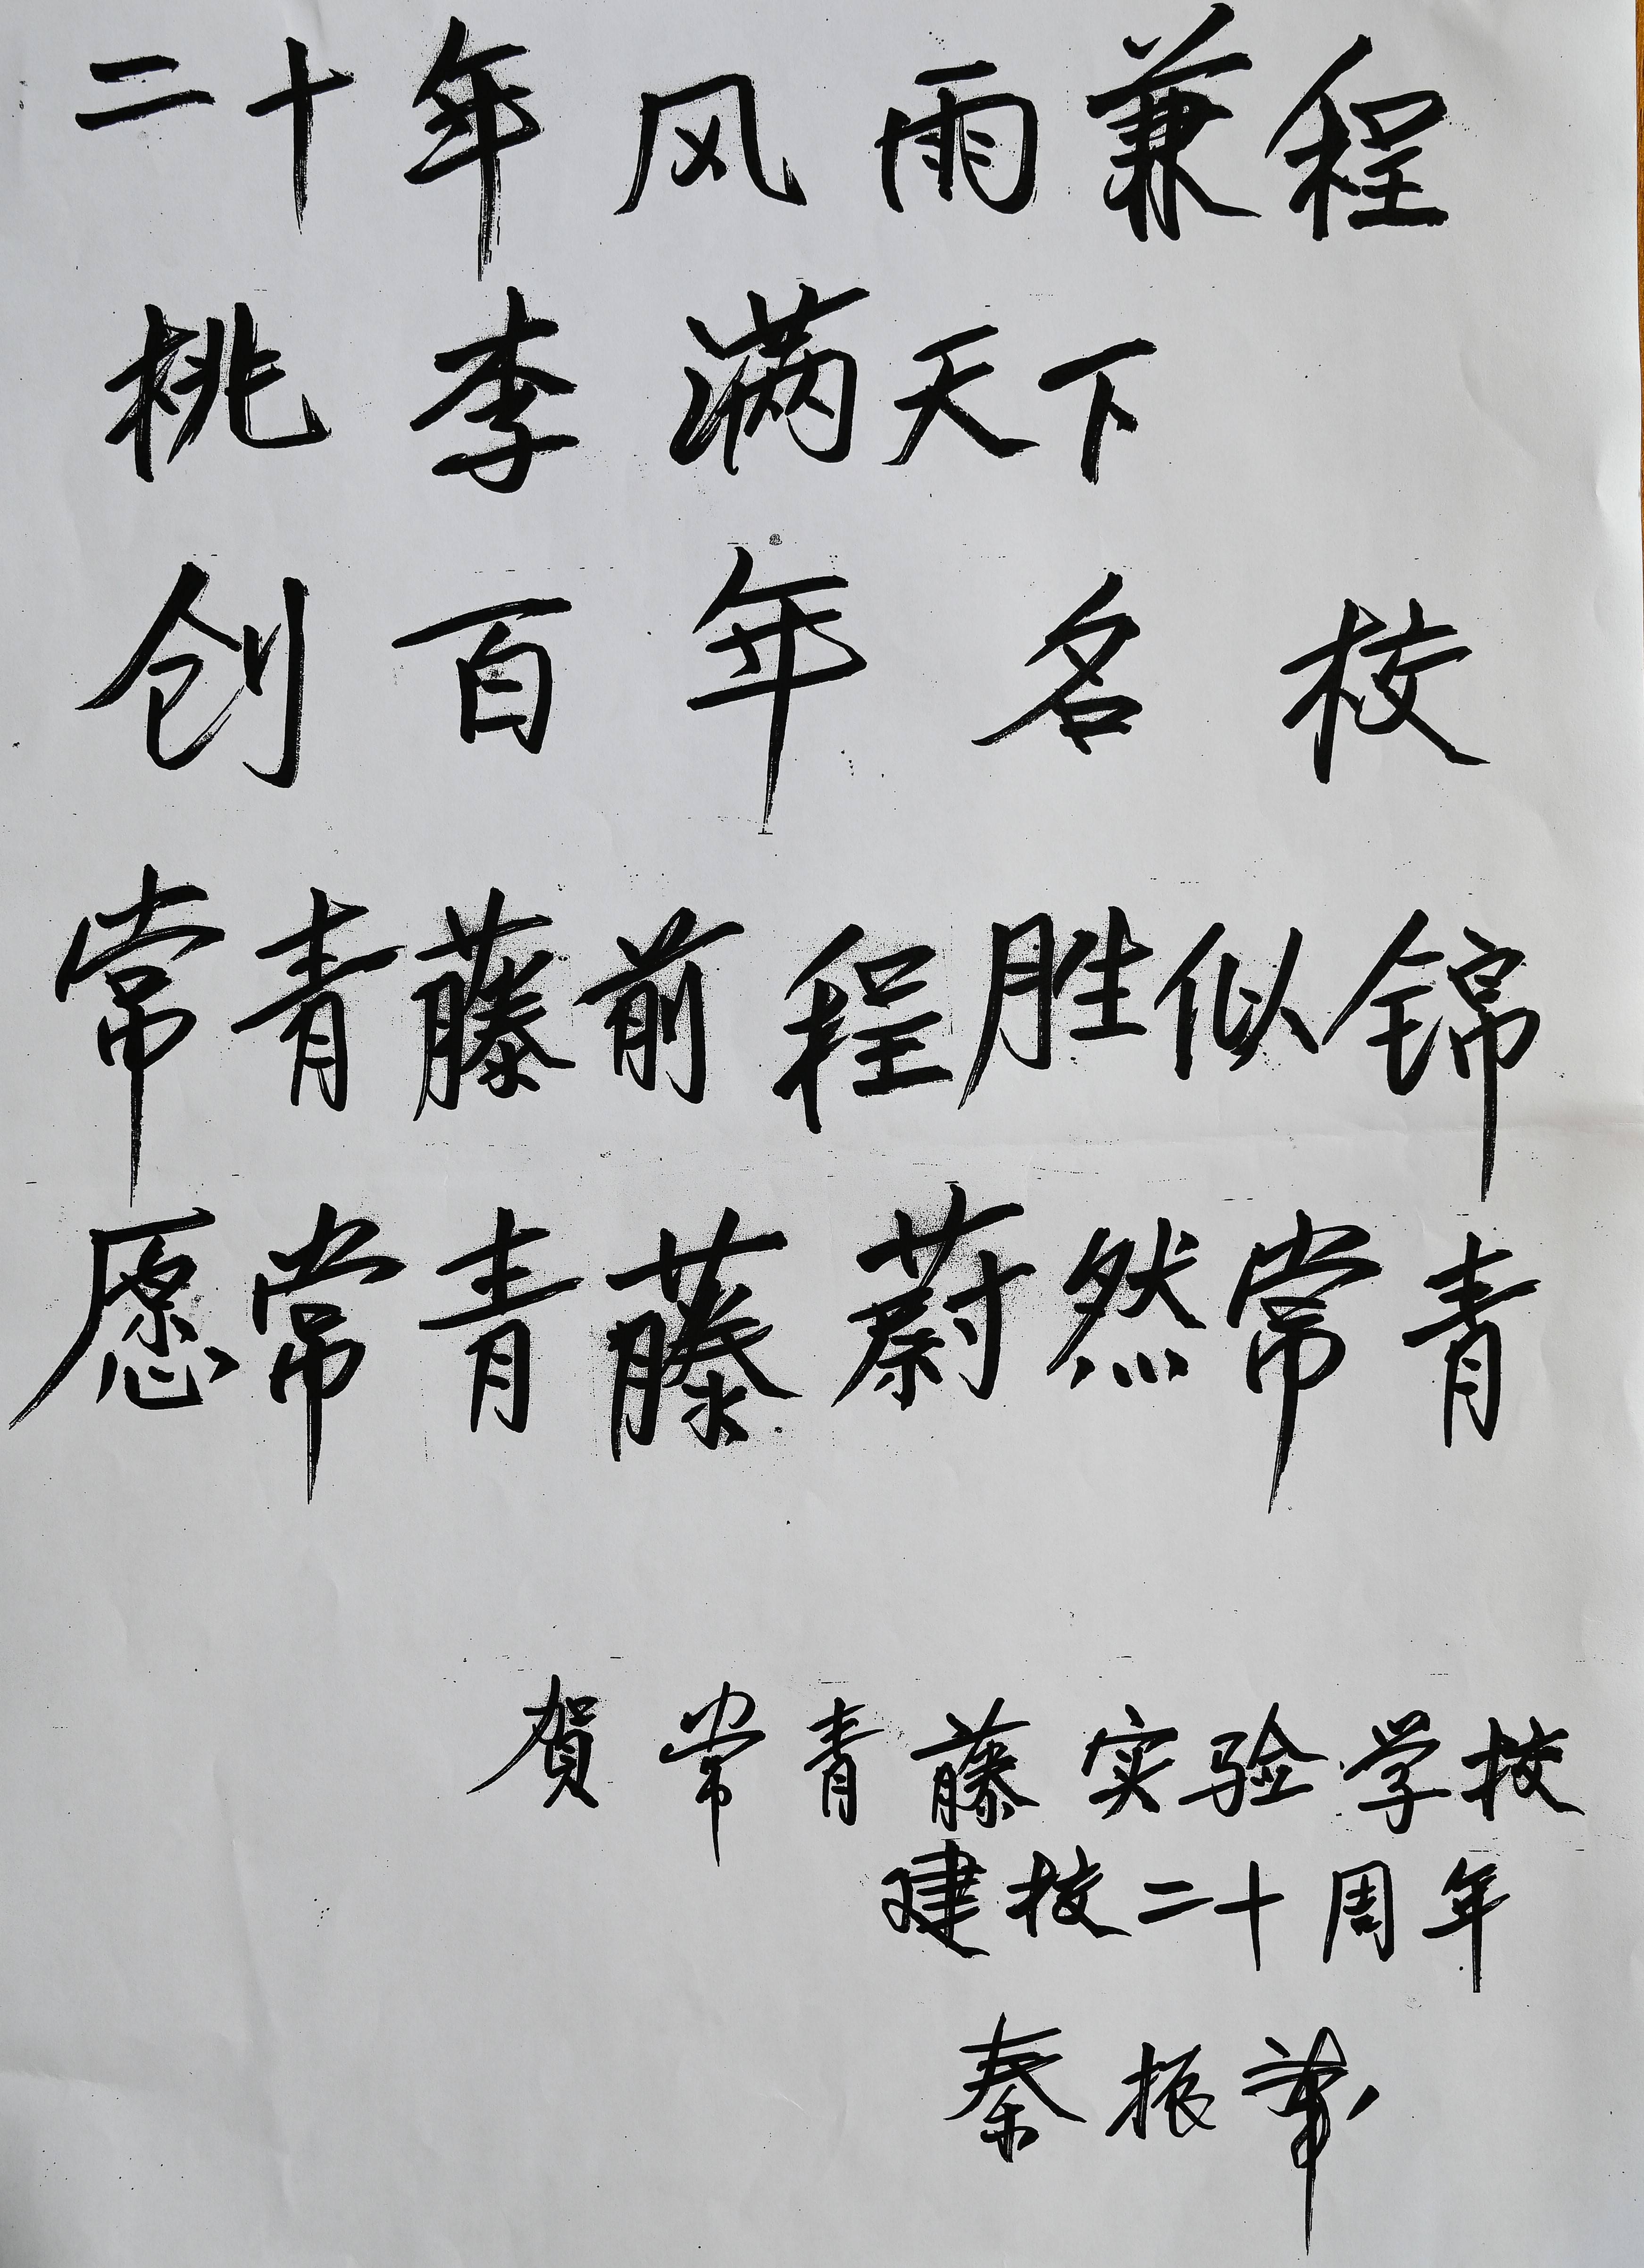 二十年风雨兼程
桃李满天下
创百年名校
常青藤前程胜似锦
愿常青藤蔚然常青
贺常青藤实验学校
建校二十周年
秦振